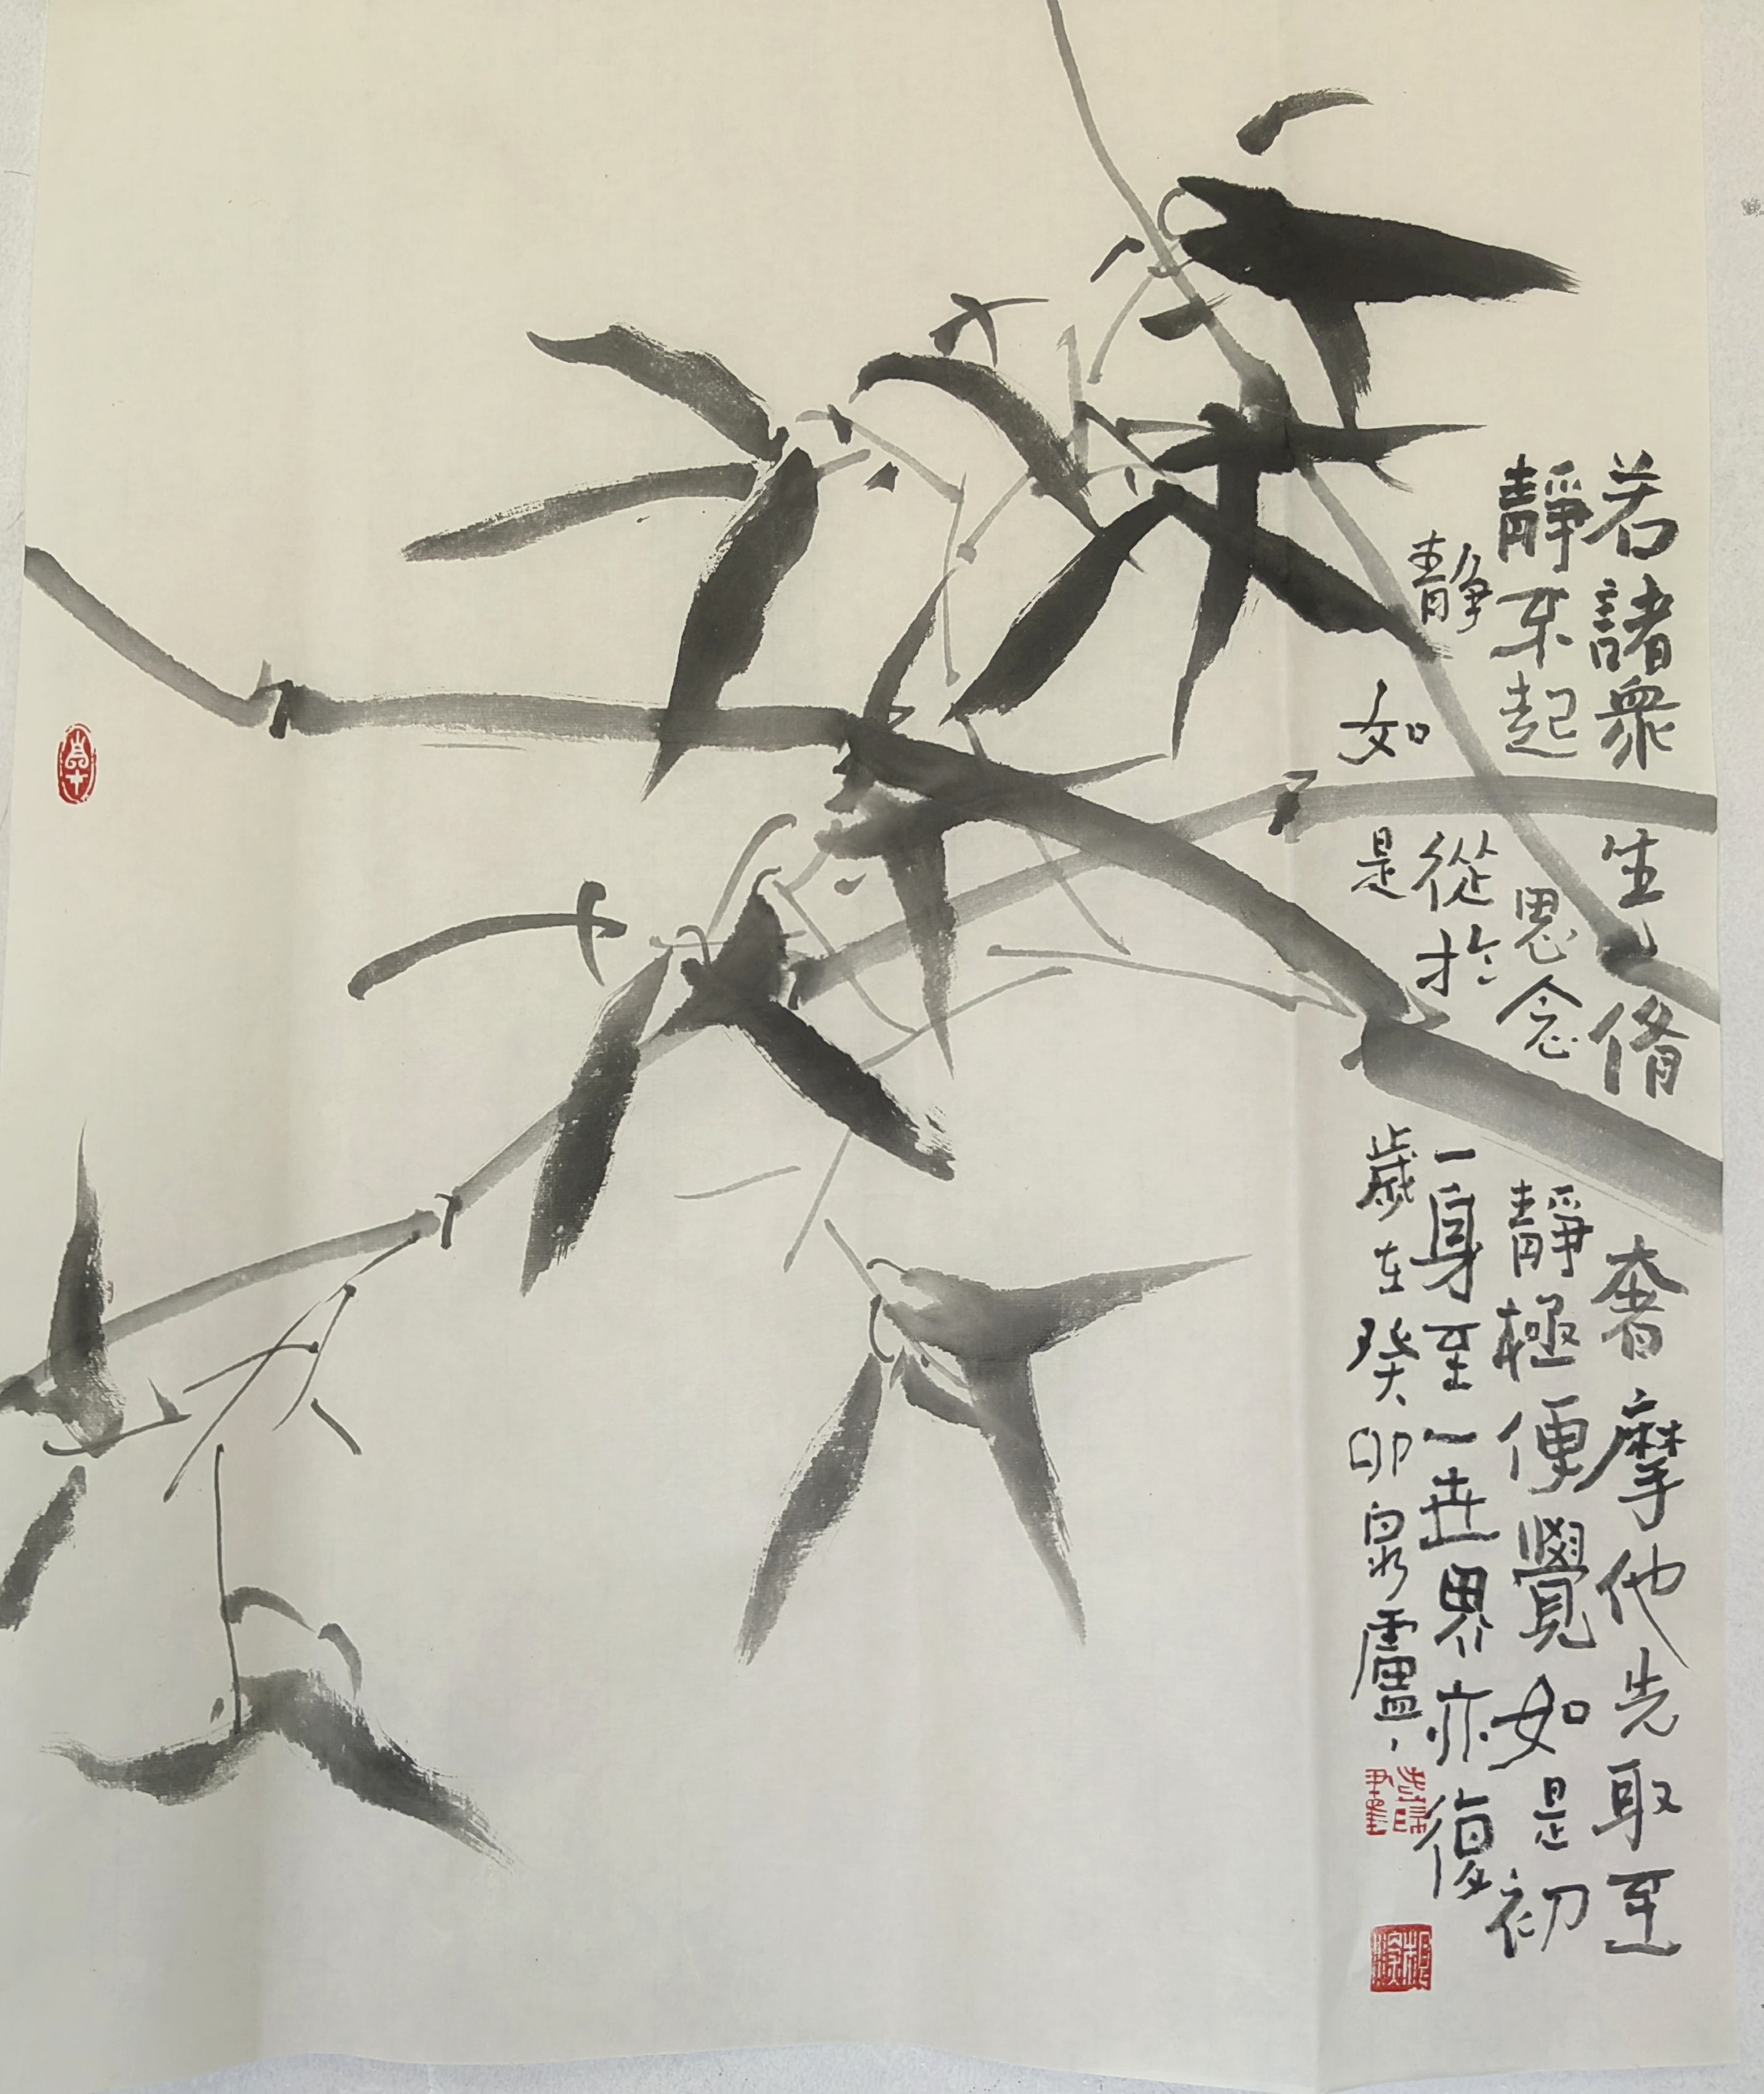 若諸衆生脩奢摩他先取至
靜不起思念靜極便覺如是初
靜從於一身至一世界亦復
如是歲在癸卯白泉廬